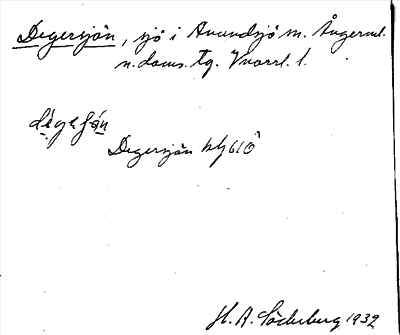 Degersjön, sjö i Anundsjö sn. Ångerml.
n. doms. tg. Vnorrl. l.
Degersjön bl 61Ö
H. A. Söderberg 1932